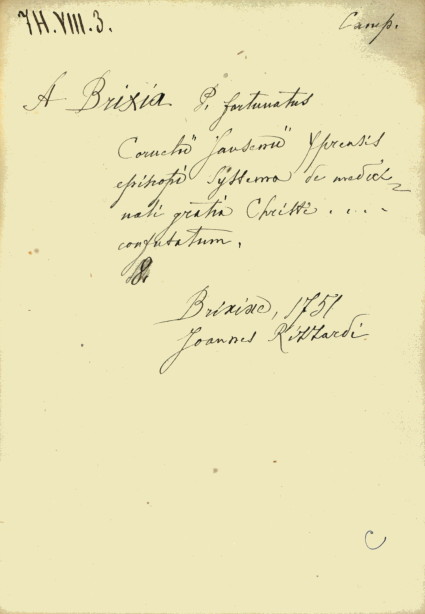 7H.VIII.3.
Camp.
A Brixia P. fortunatus
Cornelii Jansenii Yprensis
episcopi systema de medici-
nali gratia Christi . . . -
confutatum.
8.
Brixiae, 1751
Joannes Rizzardi.
C